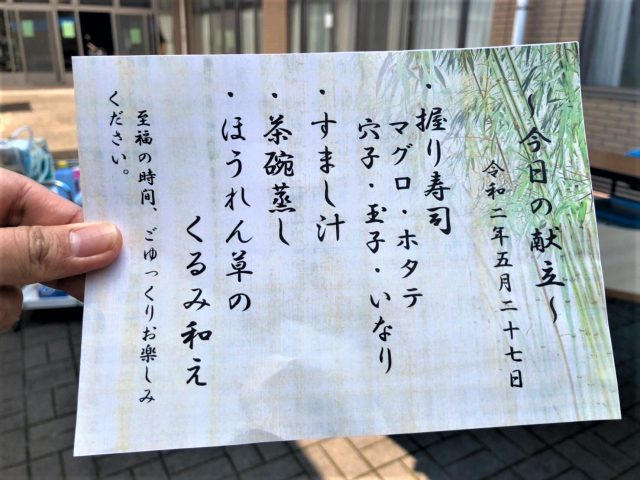 ～今日の献立～
令和二年五月二十七日
・握り寿司
マグロ・ホタテ
穴子・玉子・いなり
・すまし汁
・茶碗蒸し
・ほうれん草の
くるみ和え
至福の時間、ごゆっくりお楽しみ
ください。